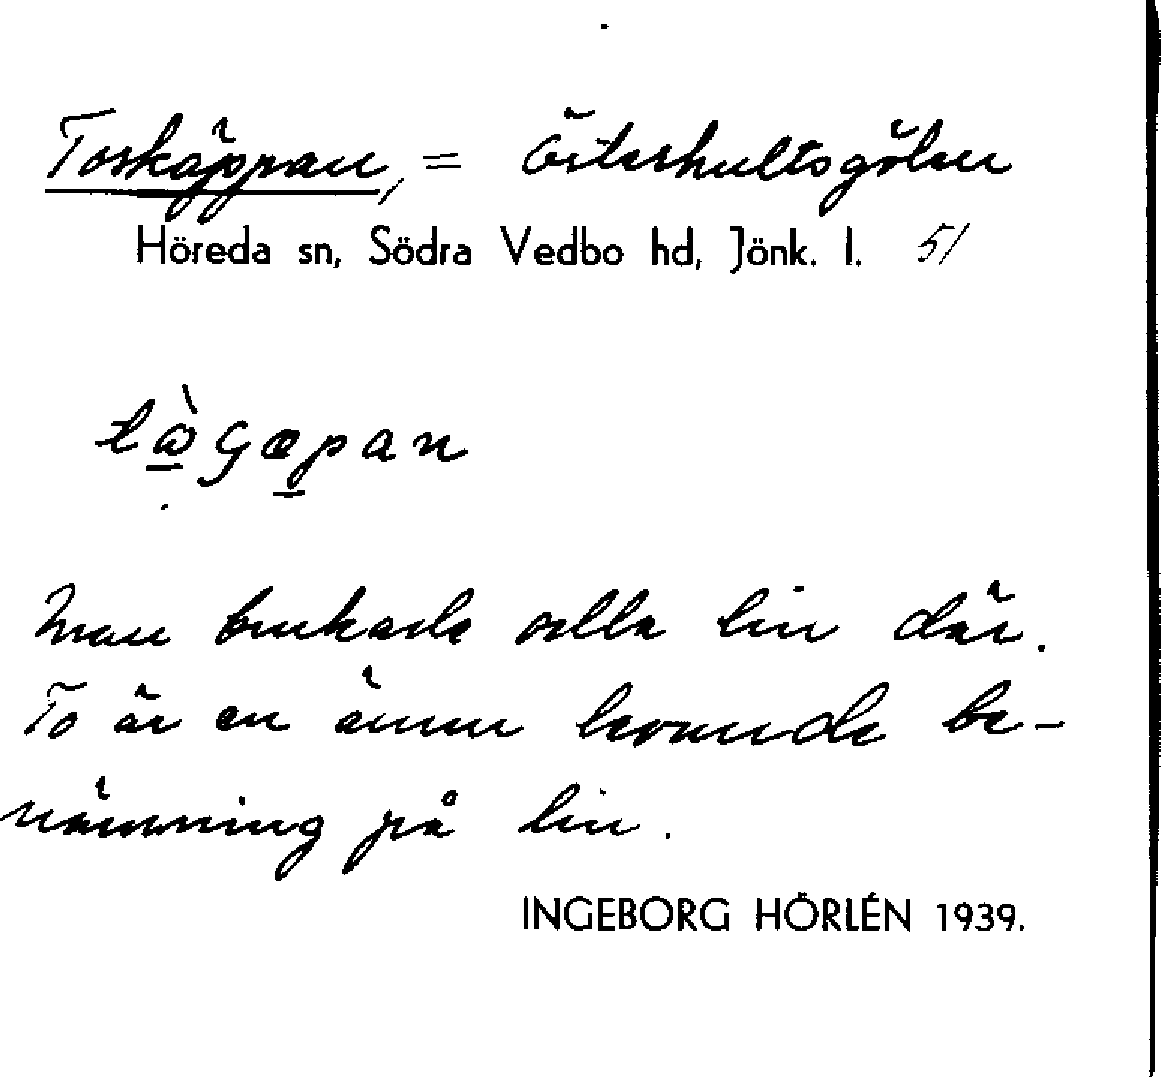 Toskäppan, = Österhultsgölen
Höreda sn, Södra Vedbo hd, Jönk. l. 51
Man brukade lin där.
To är en ännu levande be-
nämning på lin.
INGEBORG HÖRLÉN 1939.